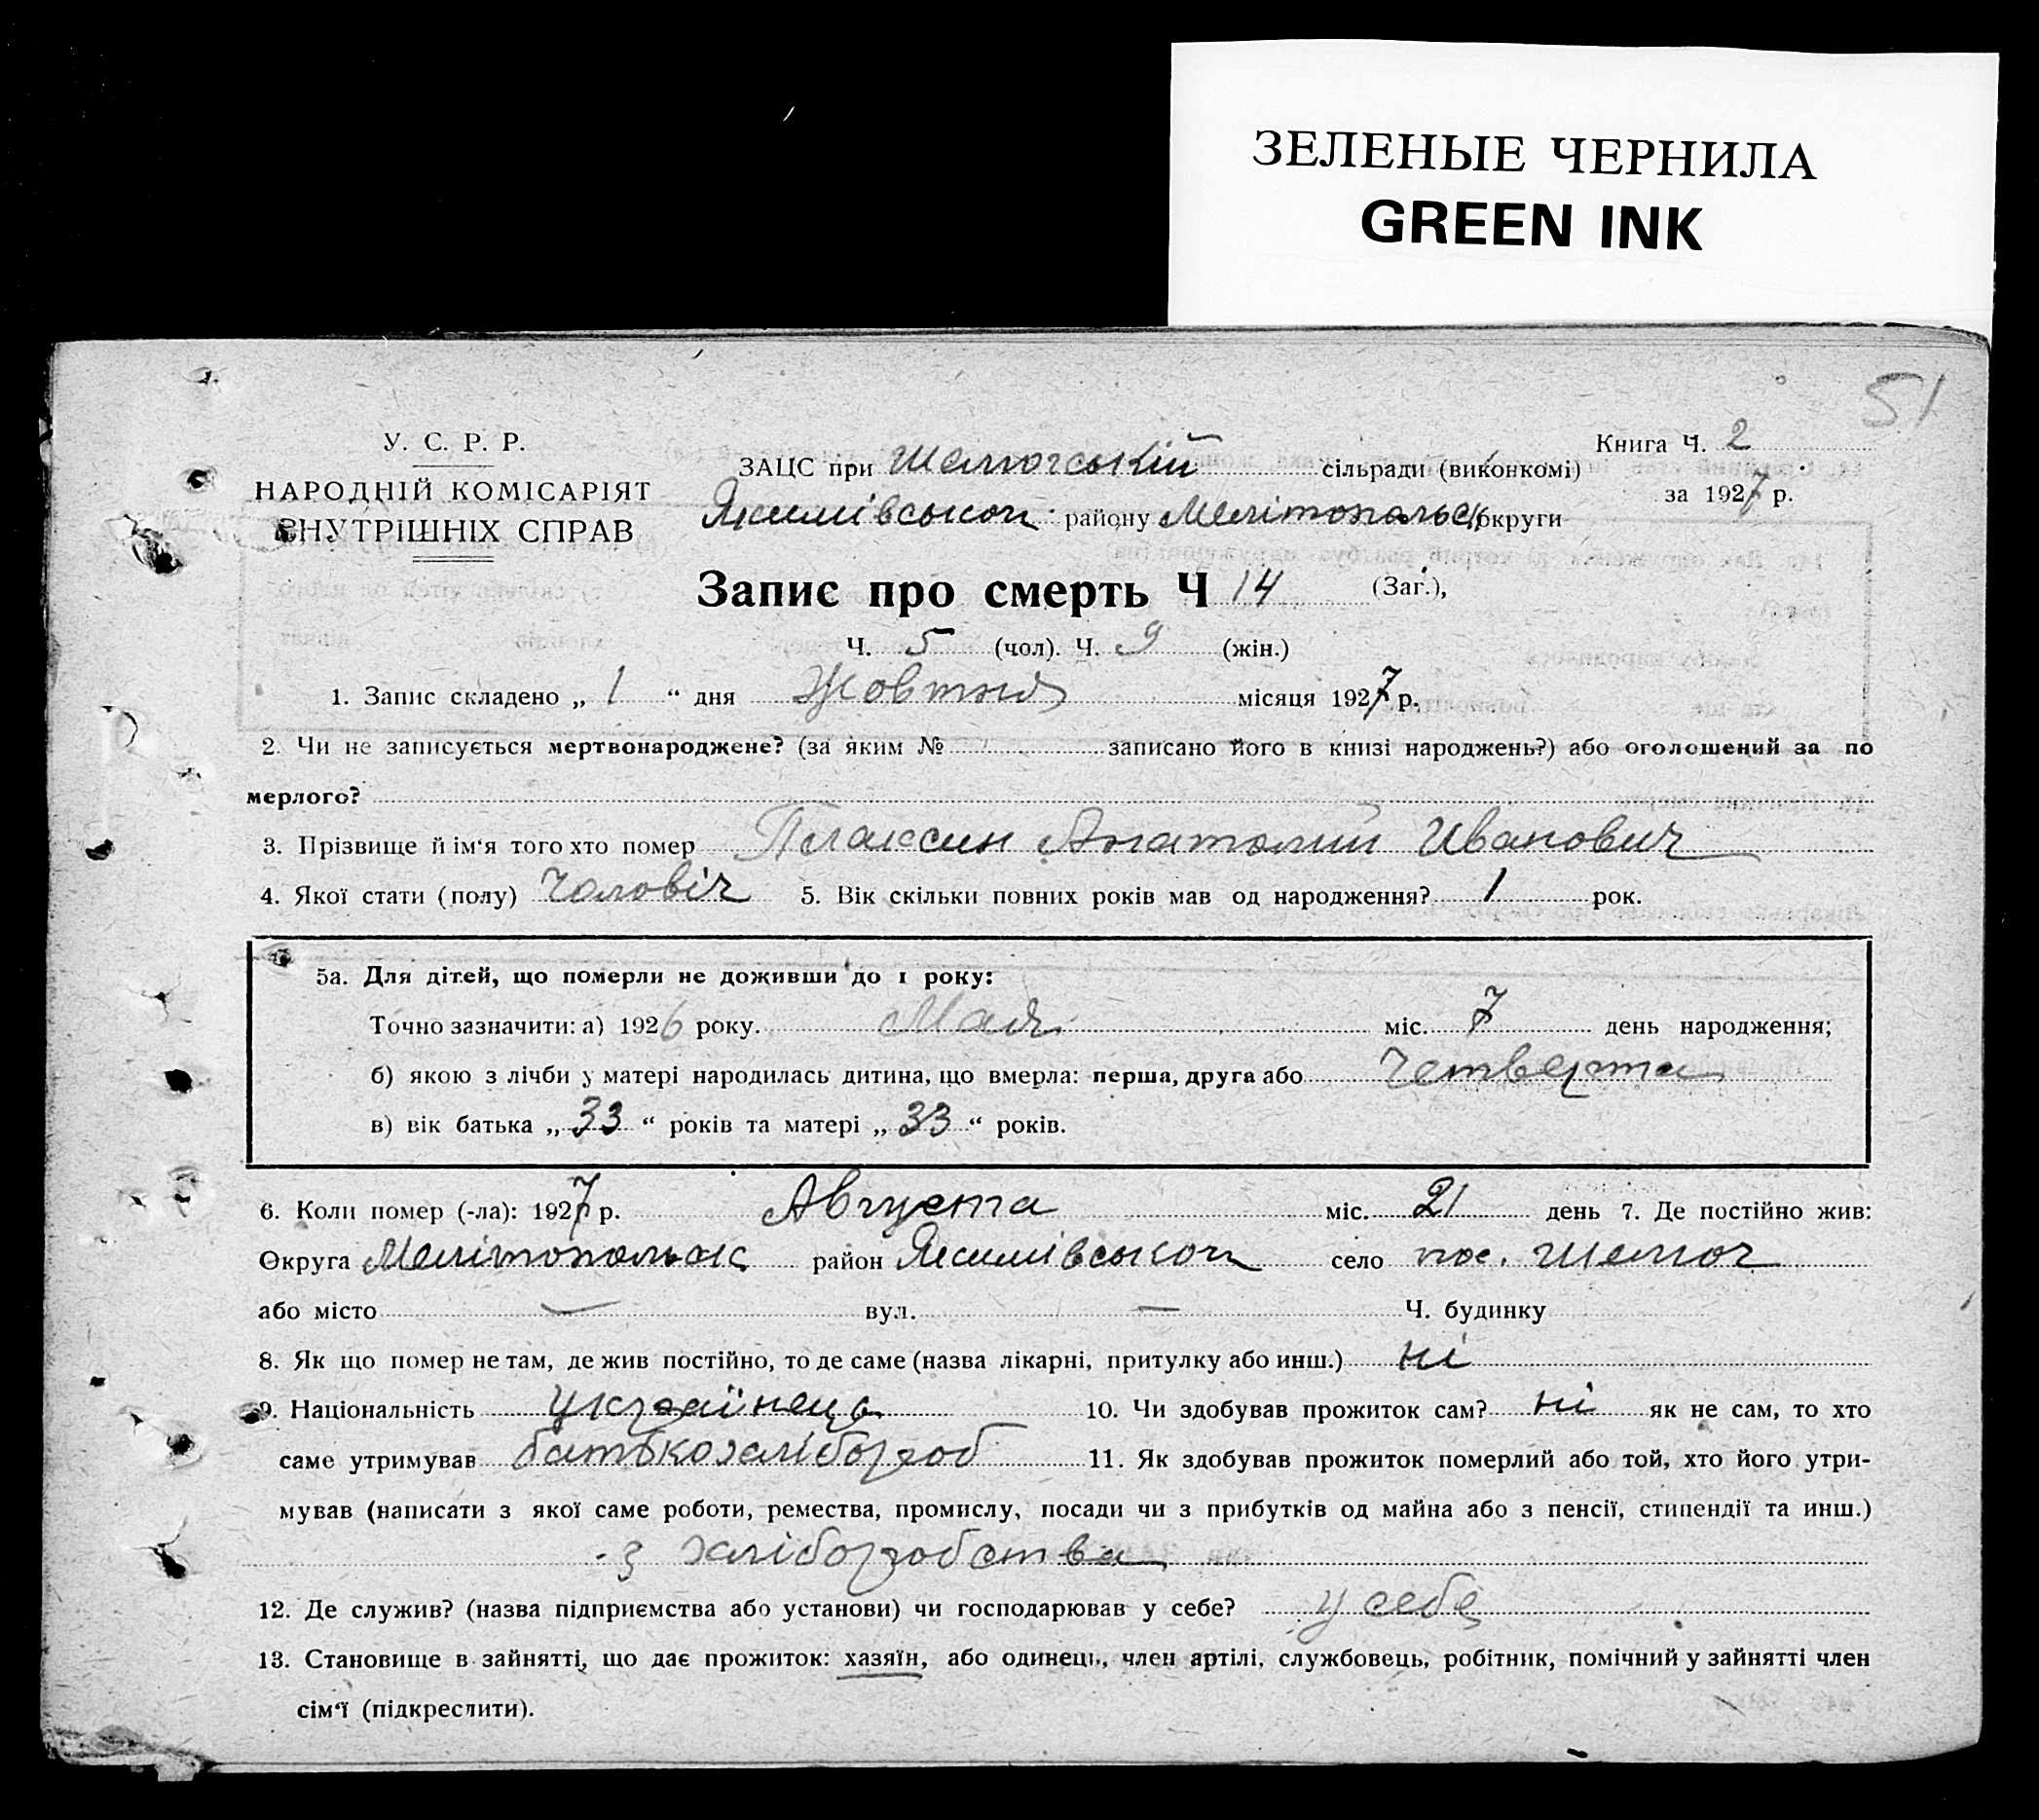 ЗЕЛЕНЫЕ ЧЕРНИЛА
GREEN INK
51
У. С. Р. Р.
НАРОДНІЙ КОМІСАРІЯТ
ВНУТРІШНІХ СПРАВ
ЗАЦС при сільради (виконкомі)
Якимівськоп району Мелітопольск округи
Книга Ч. 2
за 1927 р.
Запис про смерть Ч 14 (Заг.),
Ч. 5 (чол). Ч. 9 (жін.)
1. Запис складено „ 1 “ дня Жовтня місяця 1927 р.
2. Чи не записується мертвонароджене? (за яким № записано його в книзі народжень?) або оголошений за по
мерлого?
3. Прізвище й ім‘я того хто помер Плаксин Анатолий Иванович
4. Якої стати (полу) Чоловіч 5. Вік скільки повних років мав од народження? 1 рок.
5а. Для дітей, що померли не доживши до 1 року:
Точно зазначити: а) 1926 року. Мая міс. 7 день народження;
б) якою з лічби у матері народилась дитина, що вмерла: перша, друга або четверта
в) вік батька „ 33 “ років та матері „ 33 “ років.
6. Коли помер (-ла): 1927 р. Августа міс. 21 день 7. Де постійно жив:
Округа Мелітопольск район Якимівськоп село пос.
або місто — вул. — Ч. будинку
8. Як що помер не там, де жив постійно, то де саме (назва лікарні, притулку або инш.) ні
9. Національність українець 10. Чи здобував прожиток сам? ні як не сам, то хто
саме утримував батько хлібороб 11. Як здобував прожиток померлий або той, хто його утри-
мував (написати з якої саме роботи, ремества, промислу, посади чи з прибутків од майна або з пенсії, стипендії та инш.)
з хліборобства
12. Де служив? (назва підприємства або установи) чи господарював у себе? у себе
13. Становище в зайнятті, що дає прожиток: хазяїн, або одинець, член артілі, службовець, робітник, помічний у зайнятті член
сім‘ї (підкреслити).